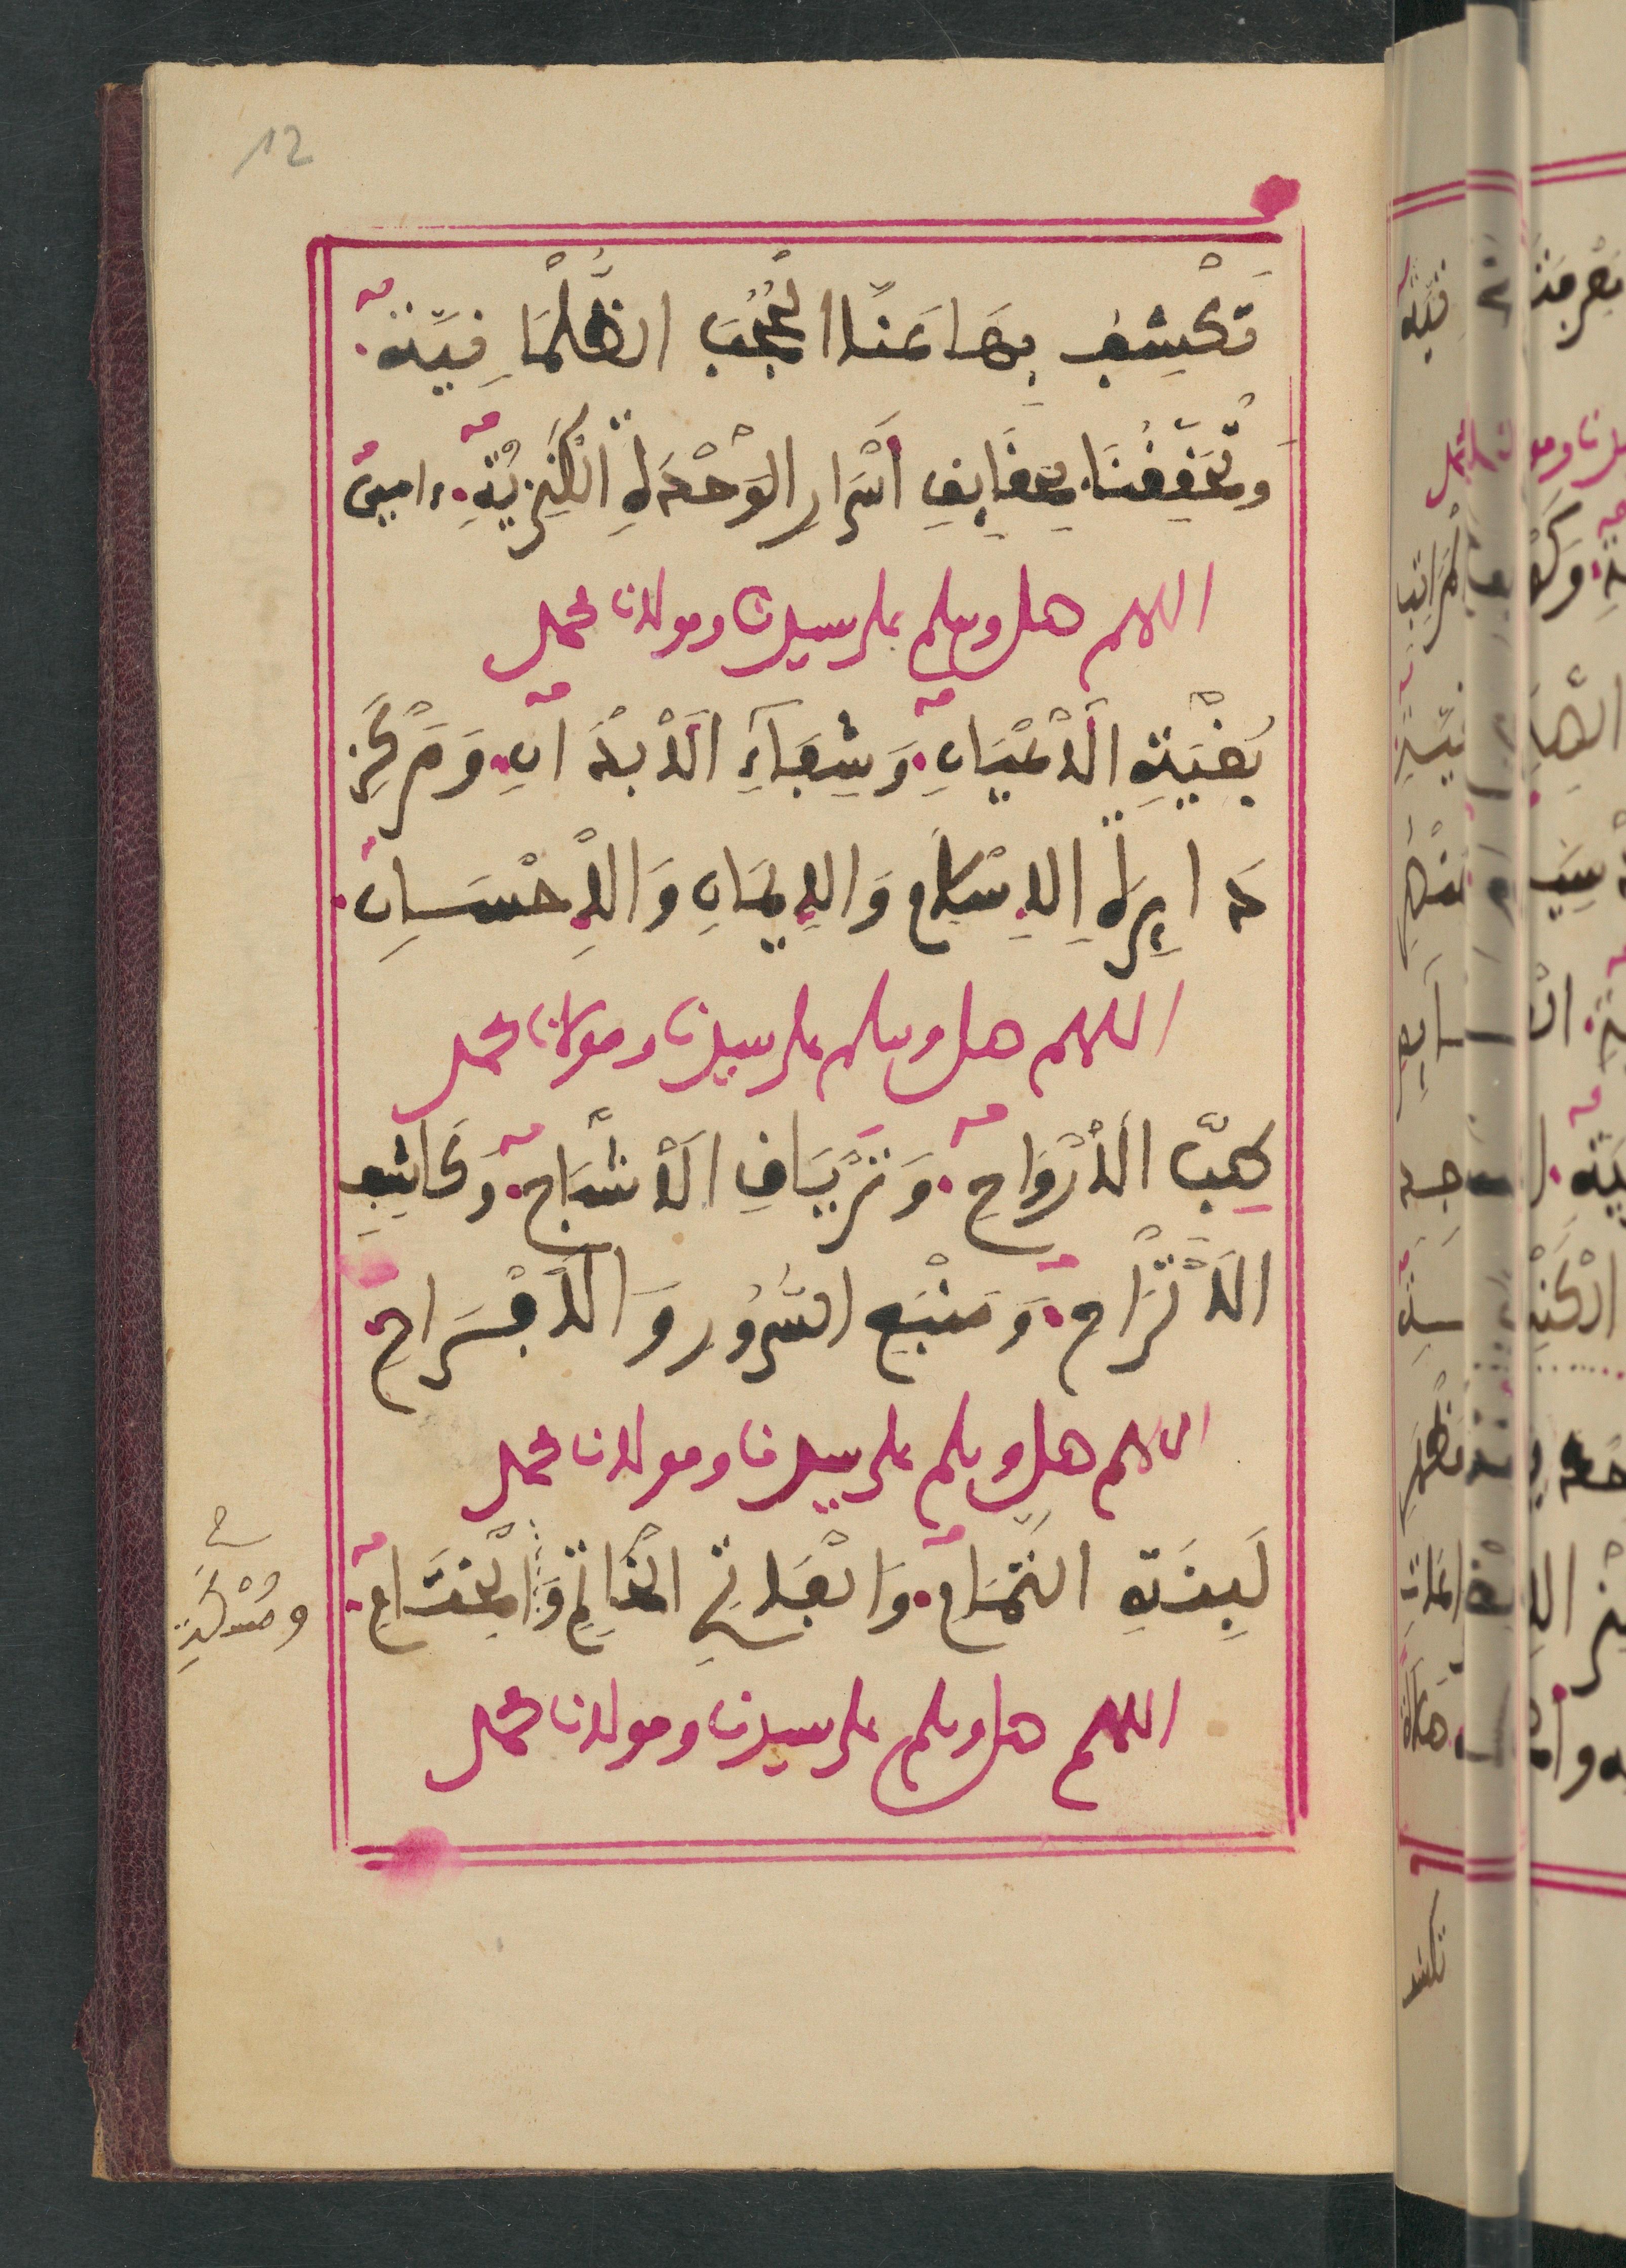 12
تَكْشِفُ بِهَا عَنَّا الْحُجُبَ الظُّلْمَانِيَّةَ
وَتُحَقِّقُنَا بِحَقَائِقِ أَسْرَارِ الْوَحْدَةِ الْكَنْزِيَّةِ ءامين
اللهم صل وسلم على سيدنا ومولانا محمد
بُغْيَةِ الَاعْيَانِ وَشِفَآءِ الَابْدَانِ وَمَرْكَزِ
دَايِرَةِ الِاسْلَامِ وَالِايمَانِ وَالِاحْسَانِ
اللهم صل وسلم على سيدنا ومولانا محمد
طِبِّ الَارْوَاحِ وَتَرْيَاقِ الَاشْبَاحِ وَكَاشِفِ
الَاتْرَاحِ وَمَنْبَعِ السُّرُورِ وَالَافْرَاحِ
اللهم صل وسلم على سيدنا ومولانا محمد
لَبِنَةِ التَّمَامِ وَالْفَاتِحِ الْخَاتِمِ وَالْخِتَامِ
ومسك
اللهم صل وسلم على سيدنا ومولانا محمد